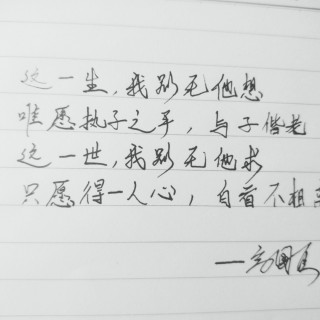 这一生，我别无他想
唯愿执子之手，与子偕老
这一世，我别无他求
只愿得一人心，白首不相